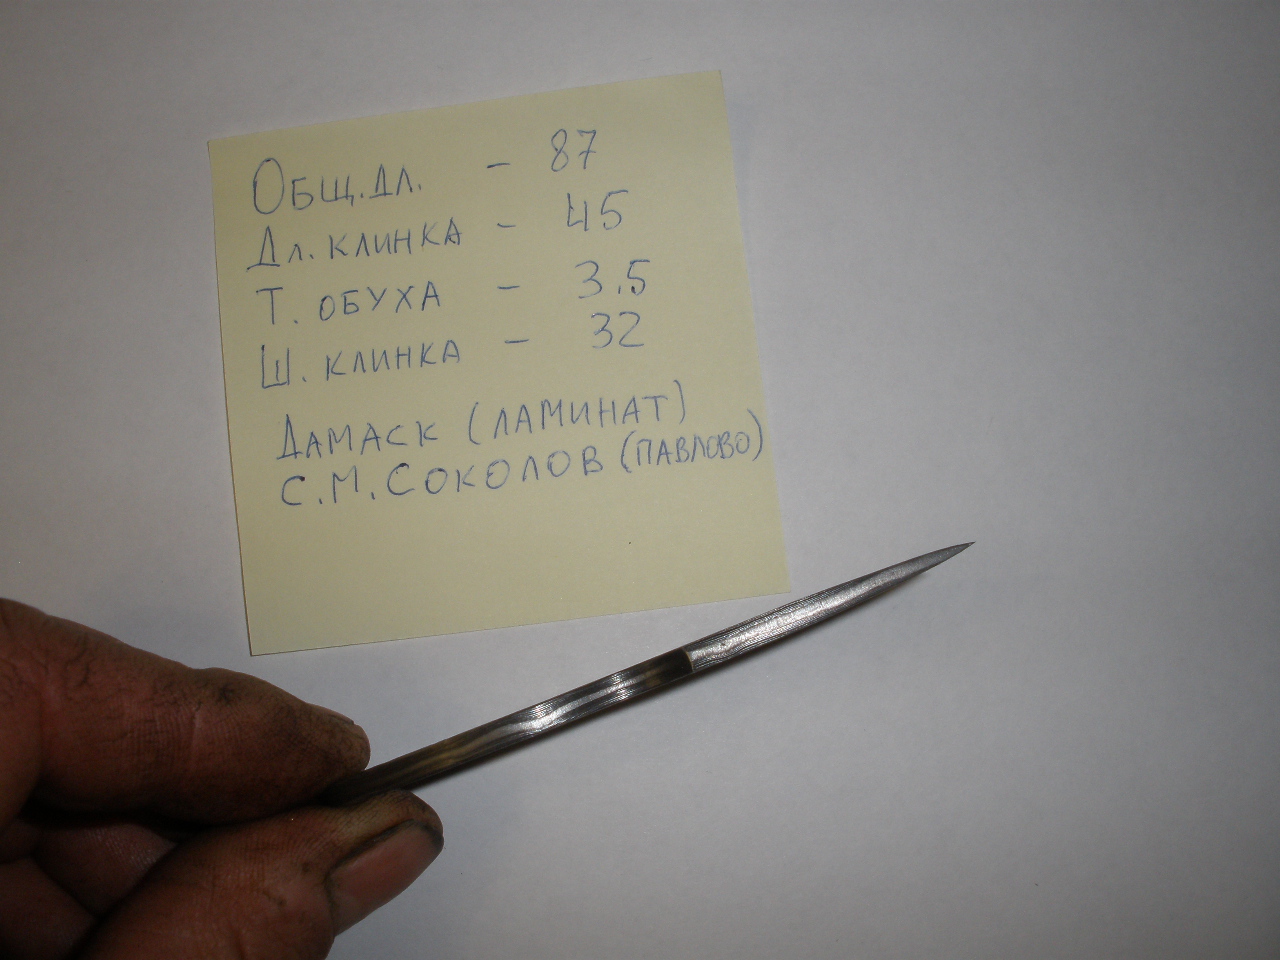 Общ.дл. - 87
Дл. клинка - 45
Т. обуха - 3.5
Ш. клинка - 32
Дамаск (ламинат)
С.М.Соколов (Павлово)